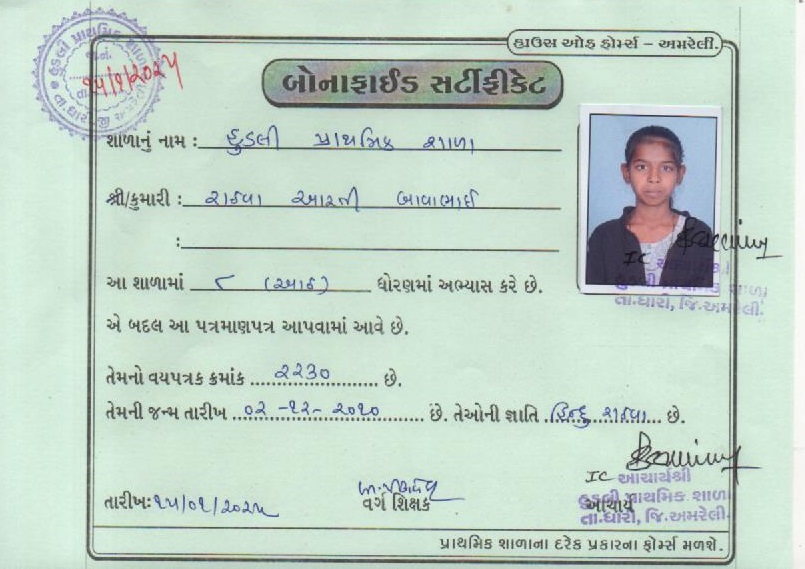 હાઉસ ઓફ ફોર્મ્સ – અમરેલી.
૧૫/૧/૨૦૨૫
બોનાફાઈડ સર્ટીફીકેટ
શાળાનું નામ : હુડલી પ્રાથમિક શાળા
શ્રી/કુમારી : રાઠવા આરતી બાવાભાઈ
:
આ શાળામાં ૮ (આઠ) ધોરણમાં અભ્યાસ કરે છે.
એ બદલ આ પત્રમાણપત્ર આપવામાં આવે છે.
તેમનો વયપત્રક ક્રમાંક ૨૨૩૦ છે.
તેમની જન્મ તારીખ ૦૨-૧૨-૨૦૧૦ છે. તેઓની જ્ઞાતિ હિન્દુ રાઠવા છે.
IC
તા.ધારી, જિ.અમરેલી.
IC આચાર્યશ્રી
હુડલી પ્રાથમિક શાળા
તા.ધારી, જિ.અમરેલી
તારીખઃ ૧૫/૦૧/૨૦૨૫ વર્ગ શિક્ષક આચાર્ય
પ્રાથમિક શાળાના દરેક પ્રકારના ફોર્મ્સ મળશે.